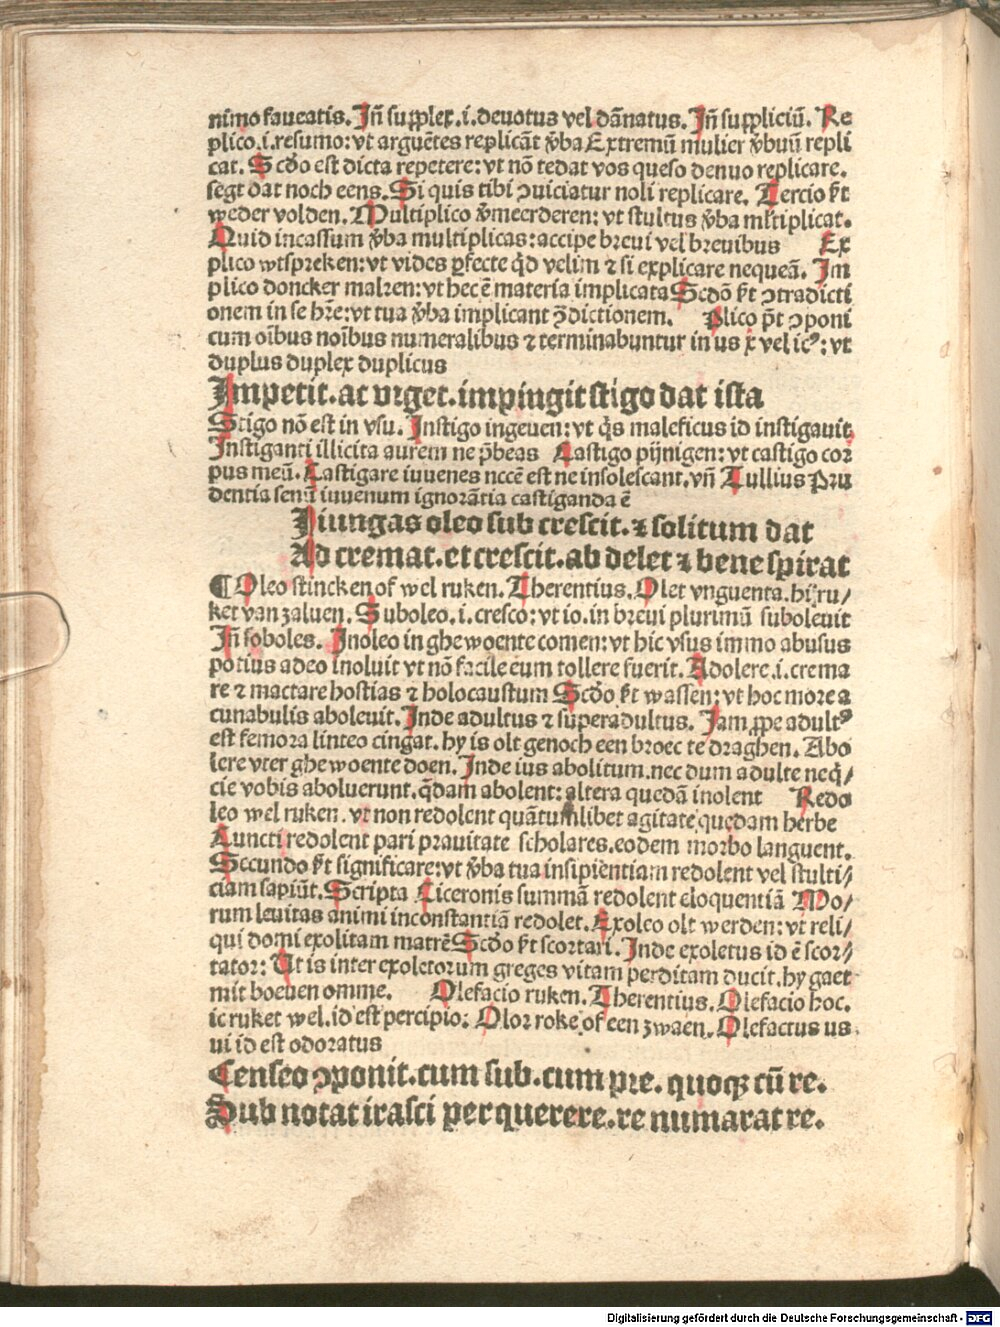 nimo faueatis. Jn̄ supplex. i. deuotus vel dānatus. Jn̄ suppliciū. Re
plico. i. resumo: vt arguētes replicāt v̄ba Extremū mulier v̄boꝝ repli
cat. Scḋo est dicta repetere: vt nō tedat vos queso denuo replicare.
segt dat noch eens. Si quis tibi ↄuiciatur noli replicare. Tercio ſt
weder volden. Multiplico v̄meerderen: vt stultus v̄ba mltiplicat.
Quid incassum v̄ba multiplicas: accipe breui vel breuibus Ex
plico wtspreken: vt vides ꝑfecte qḋ velim ⁊ si explicare nequeā. Im
plico doncker malzen: vt hec ē materia implicata Scḋo ſt ↄtradicti
onem in se hr̄e: vt tua v̄ba implicant ↄ̄dictionem. Plico pt̄ ↄponi
cum oībus noībus numeralibus ⁊ terminabuntur in us x vel icꝰ: vt
duplus duplex duplicus
Impetit. at vrget. impingit stigo dat ista
Stigo nō est in vsu. Instigo ingeuen: vt qs maleficus id instigauit
Instiganti illicita aurem ne p̄beas Castigo pijnigen: vt castigo cor
pus meū. Castigare iuuenes nccē est ne insolescant. vn̄ Tullius Pru
dentia senū iuuenum ignorātia castiganda ē
Iiungas oleo sub crescit. ⁊ solitum dat
Ad cremat. et crescit. ab delet ⁊ bene spirat
¶ Oleo stincken of wel ruken. Therentius. Olet vnguenta. hij ru/
ket van zaluen. Suboleo. i. cresco: vt io. in breui plurimū suboleuit
Jn̄ soboles. Inoleo in ghewoente comen: vt hic vsus immo abusus
potius adeo inoluit vt nō facile eum tollere fuerit. Adolere. i. crema
re ⁊ mactare hostias ⁊ holocaustum Scḋo ſt wassen: vt hoc more a
cunabulis aboleuit. Inde adultus ⁊ superadultus. Iam ꝓpe adultꝰ
est femora linteo cingat. hy is olt genoch een broec te draghen. Abo
lere vter ghewoente doen. Inde ius abolitum. nec dum adulte neq̄/
cie vobis aboluerunt. q̄dam abolent: altera quedā inolent Redo
leo wel ruken. vt non redolent quātumlibet agitate quedam herbe
Cuncti redolent pari prauitate scholares. eodem morbo languent.
Secundo ſt significare: vt v̄ba tua insipientiam redolent vel stulti/
ciam sapiūt. Scripta Ciceronis summā redolent eloquentiā Mo/
rum leuitas animi inconstantiā redolet. Exoleo olt werden: vt reli/
qui domi exolitam matrē Scḋo ſt scortari. Inde exoletus id ē scor/
tator: Ut is inter exoletorum greges vitam perditam ducit. hy gaet
mit boeuen omme. Olefacio ruken. Therentius. Olefacio hoc.
ic ruket wel. id est percipio: Olor roke of een zwaen. Olefactus us
ui id est odoratus
Censeo ↄponit. cum sub. cum pre. quoqꝫ cū re.
Sub notat irasci per querere. re numarat re.
Digitalisierung gefördert durch die Deutsche Forschungsgemeinschaft - DFG